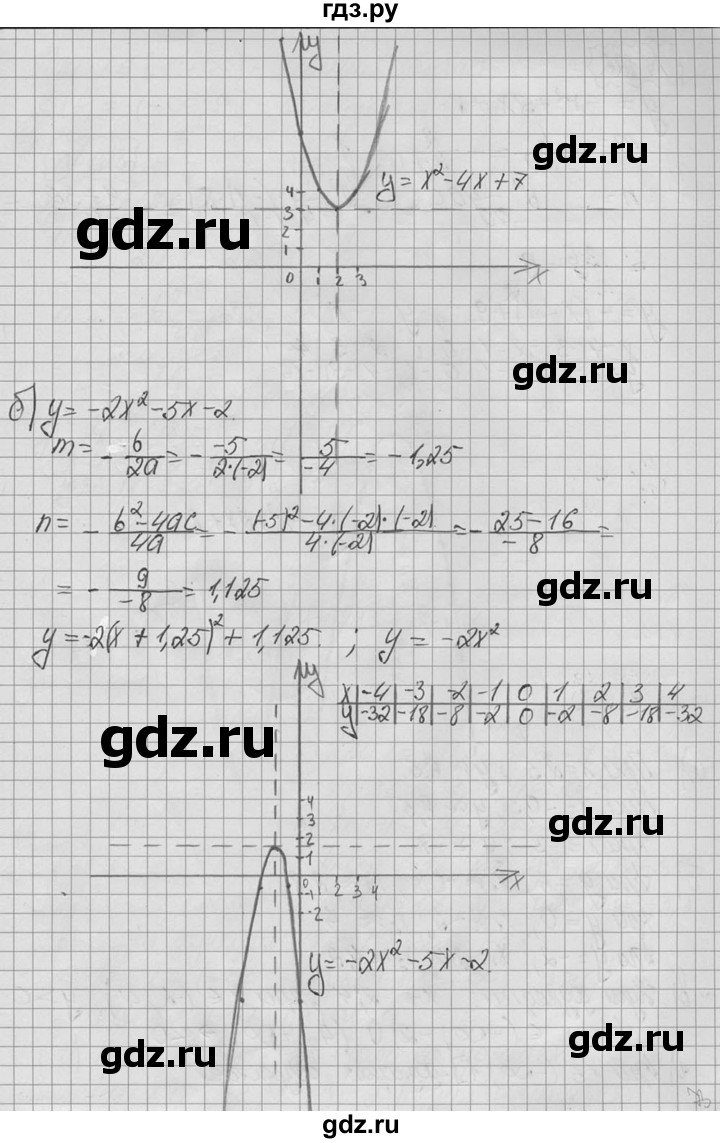 гдз.ру
y
gdz.ru
y = x² - 4x + 7
gdz.ru
4
3
2
1
0 1 2 3 x
gdz.ru
б) y = -2x² - 5x - 2.
m = - b/2a = - -5/2·(-2) = 5/-4 = -1,25
n = - b² - 4ac/4a = - (-5)² - 4·(-2)·(-2)/4·(-2) = - 25 - 16/-8 =
= - 9/-8 = 1,125
gdz.ru
y = -2(x + 1,25)² + 1,125. ; y = -2x²
y
x -4 -3 -2 -1 0 1 2 3 4
y -32 -18 -8 -2 0 -2 -8 -18 -32
gdz.ru
4
3
2
1
gdz.ru
0 1 2 3 4 x
-1
-2
y = -2x² - 5x - 2.
gdz.ru
gdz.ru
gdz.ru